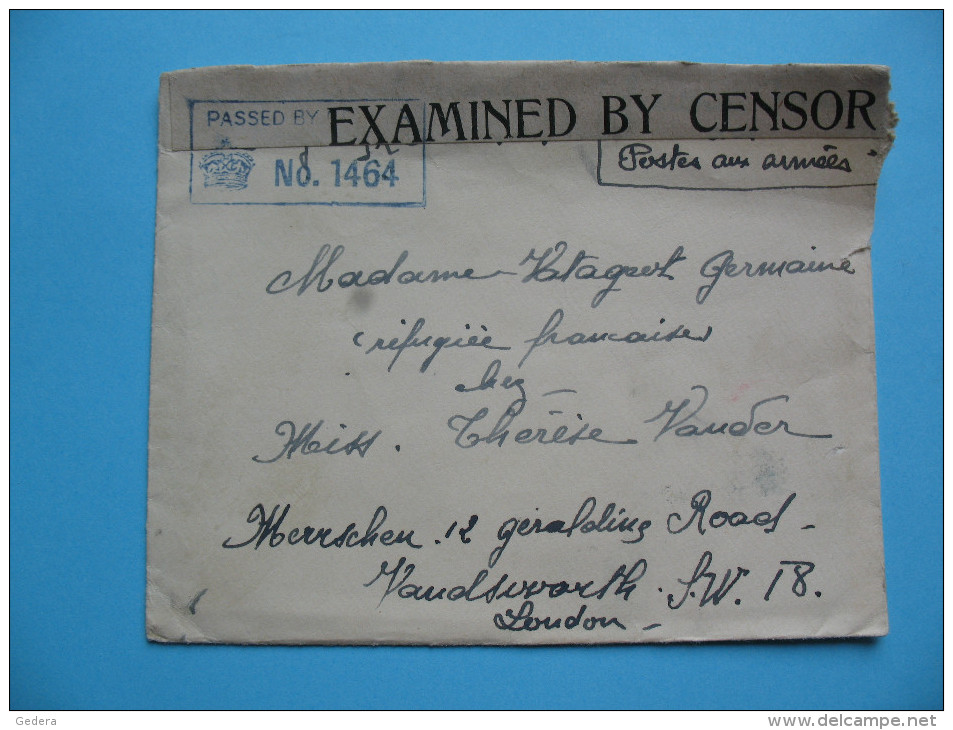 PASSED BY
EXAMINED BY CENSOR
No. 1464
Postes aux armées
Madame Germaine
(réfugiée francaise)
chez
Miss. Thérèse Vander
Merrschen. 12 géralding Road
Vandsworth. S.W. 18.
London
Gedera
delcampe.net